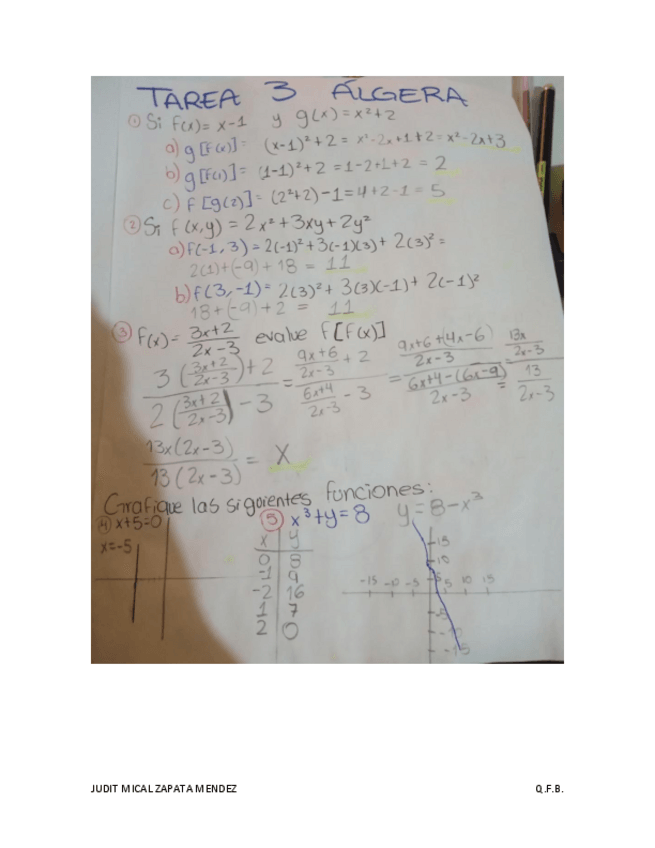 TAREA 3 ÁLGERA
① Si f(x)= x-1 y g(x)=x²+2
a) g[f(x)]= (x-1)²+2 = x²-2x+1+2= x²-2x+3
b) g[f(1)]= (1-1)²+2 =1-2+1+2 = 2
c) f[g(2)]= (2²+2)-1=4+2-1= 5
② Si f(x,y) = 2x²+3xy+2y²
a) f(-1,3)=2(-1)²+3(-1)(3)+2(3)²=
2(1)+(-9)+18 = 11
b) f(3,-1)= 2(3)²+3(3)(-1)+2(-1)²
18+(-9)+2 = 11
③ f(x)= 3x+2 / 2x-3 evalue f[f(x)]
3(3x+2 / 2x-3)+2 / 2(3x+2 / 2x-3)-3 = 9x+6 / 2x-3 + 2 / 6x+4 / 2x-3 - 3 = 9x+6+(4x-6) / 2x-3 / 6x+4-(6x-9) / 2x-3 = 13x / 2x-3 / 13 / 2x-3
13x(2x-3) / 13(2x-3) = x
Grafique las siguientes funciones:
④ x+5=0
x=-5
⑤ x³+y=8 y=8-x³
x y
0 8
-1 9
-2 16
1 7
2 0
15
10
5
-15 -10 -5 5 10 15
-5
-15
JUDIT MICAL ZAPATA MENDEZ Q.F.B.